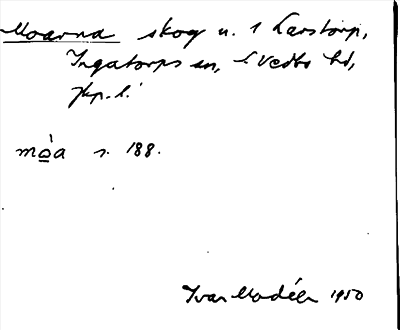 Moarna skog u. 1 Larstorp,
Ingatorps sn, S Vedbo hd,
Jkp. l.
mòa s. 188.
Ivar Modéer 1950